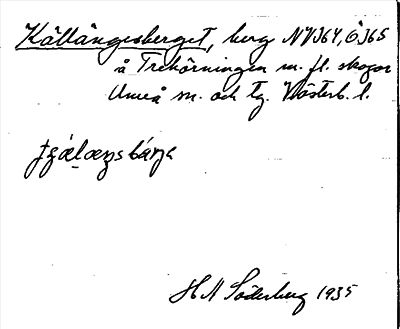 Källängesberget, berg NVJ64, ÖJ65
å Trehörningen m. fl. skogar
Umeå sn. och tg. Västerb. l.
H N Söderberg 1935